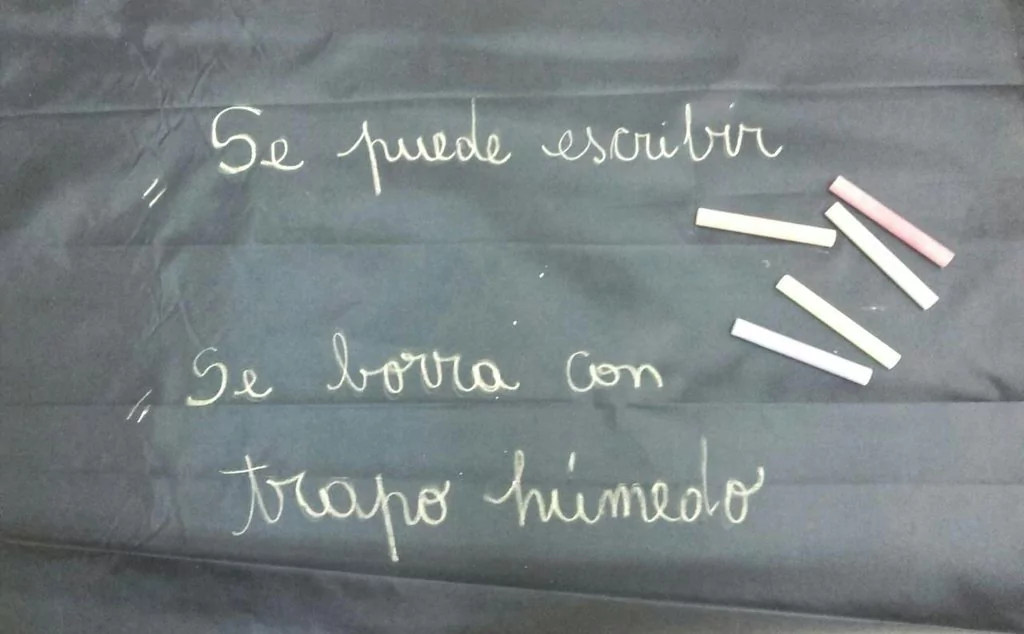 " Se puede escribir
" Se borra con
trapo húmedo